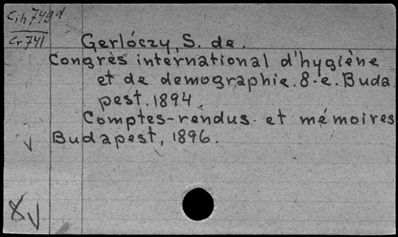 Cih 749d
Cr 741
Gerlóczy, S. de.
Congrès international d'hygiène
et de demographie. 8-e. Buda
pest. 1894.
Comptes-rendus et mémoires
Budapest, 1896.
8